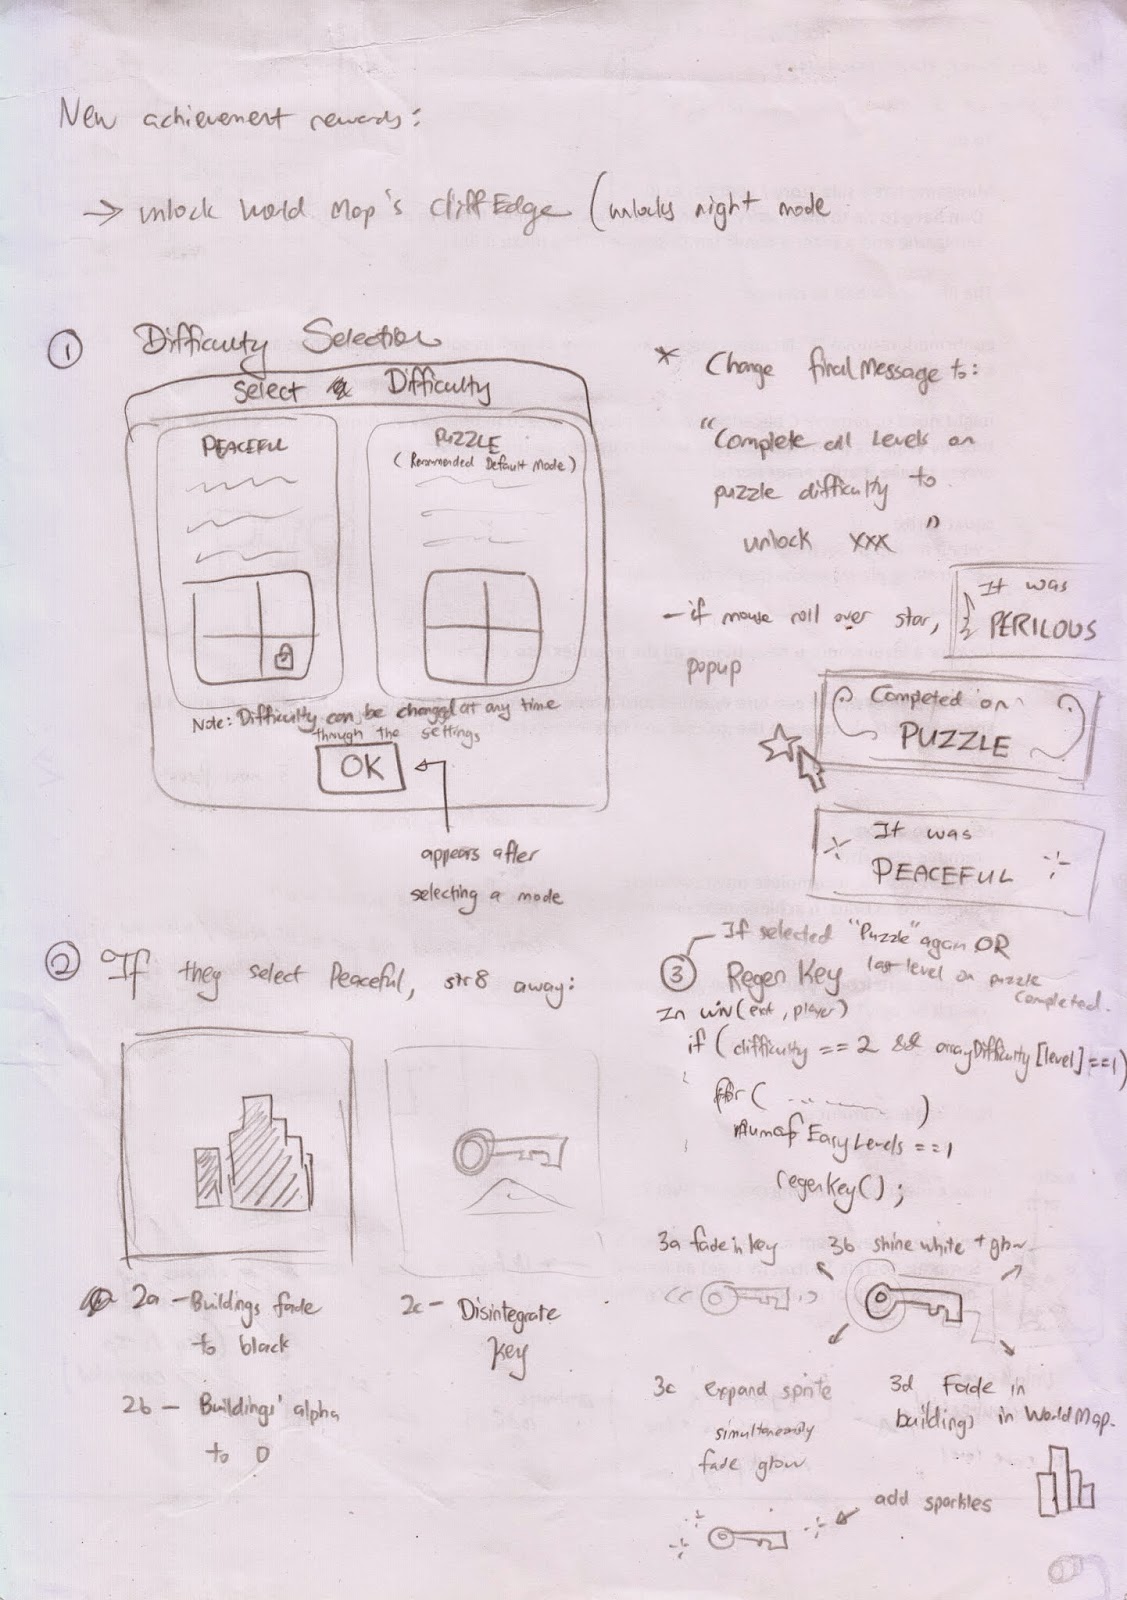 New achievement rewards:
→ unlock World Map's Cliff Edge (unlocks night mode
① Difficulty Selection
Select a Difficulty
PEACEFUL
PUZZLE
(Recommended Default Mode)
Note: Difficulty can be changed at any time
through the settings
OK
appears after
selecting a mode
* Change finalMessage to:
"Complete all levels on
puzzle difficulty to
unlock xxx"
- if mouse roll over star,
popup
It was
PERILOUS
Completed on
PUZZLE
It was
PEACEFUL
② If they select Peaceful, str8 away:
2a - Buildings fade
to black
2b - Buildings' alpha
to 0
2c - Disintegrate
key
If selected "Puzzle" again OR
last level on puzzle
completed.
③ Regen Key
In win(ext, player)
if (difficulty == 2 && arrayDifficulty[level] == 1)
for ( ......... )
numofEasyLevels == 1
regenKey();
3a fade in key
3b shine white + glow
3c expand sprite
simultaneously
fade glow
3d Fade in
buildings in WorldMap.
add sparkles